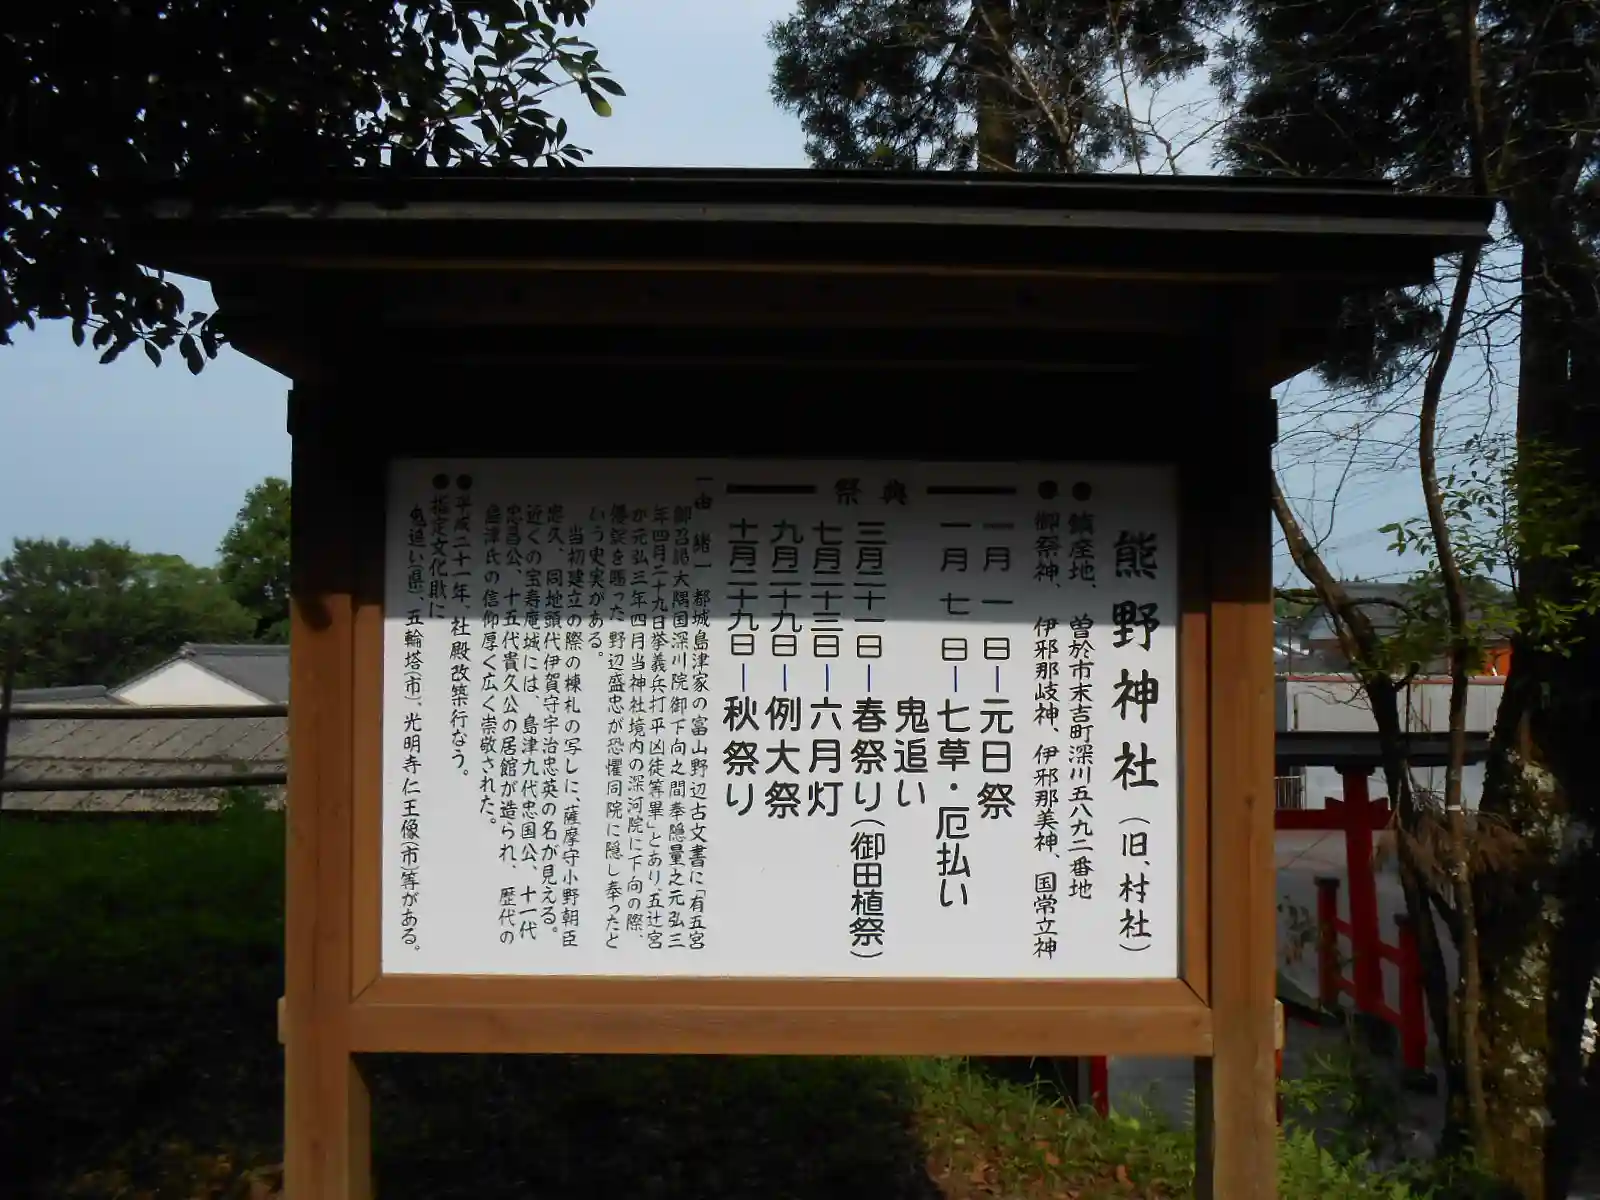 熊野神社(旧、村社)
●鎮座地、曽於市末吉町深川五八九二番地
●御祭神、伊邪那岐神、伊邪那美神、国常立神
祭典
一月一日―元日祭
一月七日―七草・厄払い
鬼追い
三月二十一日―春祭り(御田植祭)
七月二十三日―六月灯
九月二十九日―例大祭
十月二十九日―秋祭り
一由緒一 都城島津家の富山野辺古文書に「有五宮
御召詣大隅国深川院御下向之間奉隠量之元弘三
年四月二十九日挙義兵打平凶徒等畢」とあり、五辻宮
が元弘三年四月当神社境内の深河院に下向の際、
を賜った野辺盛忠が恐懼同院に隠し奉ったと
いう史実がある。
当初建立の際の棟札の写しに、薩摩守小野朝臣
忠久、同地頭代伊賀守宇治忠英の名が見える。
近くの宝寿庵城には、島津九代忠国公、十一代
忠昌公、十五代貴久公の居館が造られ、歴代の
島津氏の信仰厚く広く崇敬された。
●平成二十一年、社殿改築行なう。
●指定文化財に
鬼追い(県)、五輪塔(市)、光明寺仁王像(市)等がある。